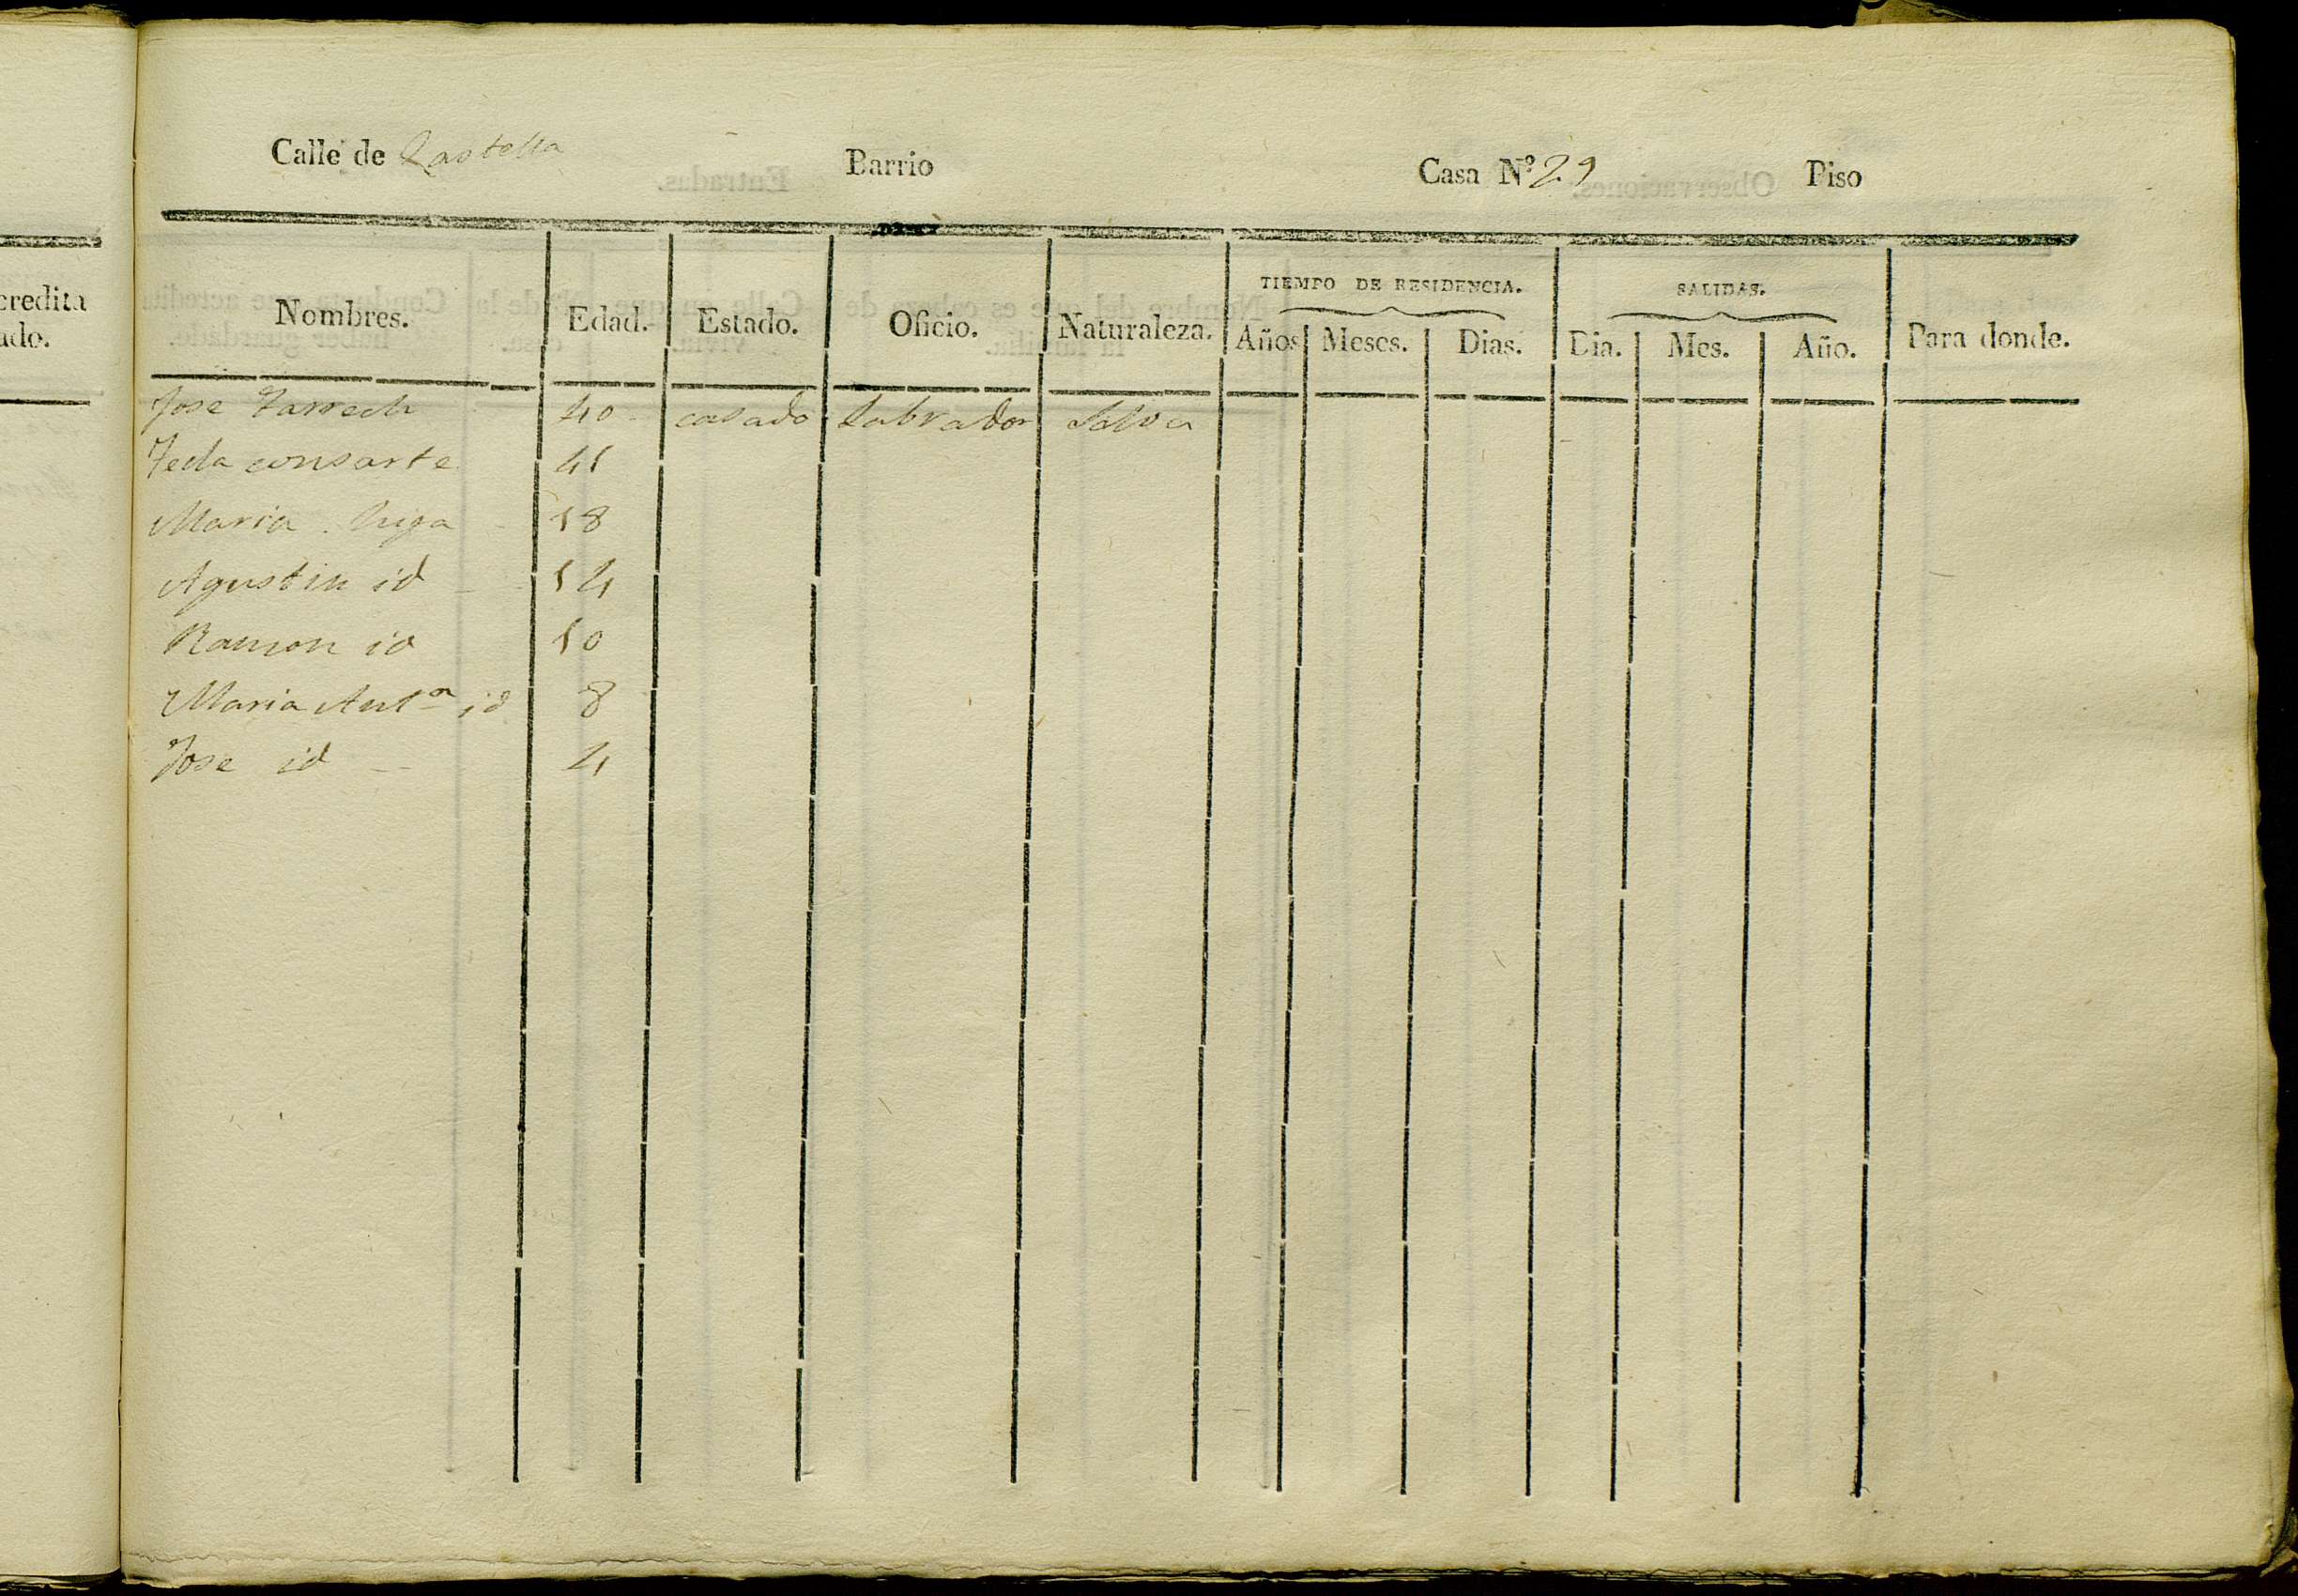 credita
ado.
Calle de Castella Barrio Casa Nº 29 Piso
Nombres. Edad. Estado. Oficio. Naturaleza. TIEMPO DE RESIDENCIA. Años Meses. Dias. SALIDAS. Dia. Mes. Año. Para donde.
Jose Tarrech 40 casado Labrador Selva
Tecla consorte 41
Maria hija 18
Agustin id 14
Ramon id 10
Maria Antª id 8
Jose id 4